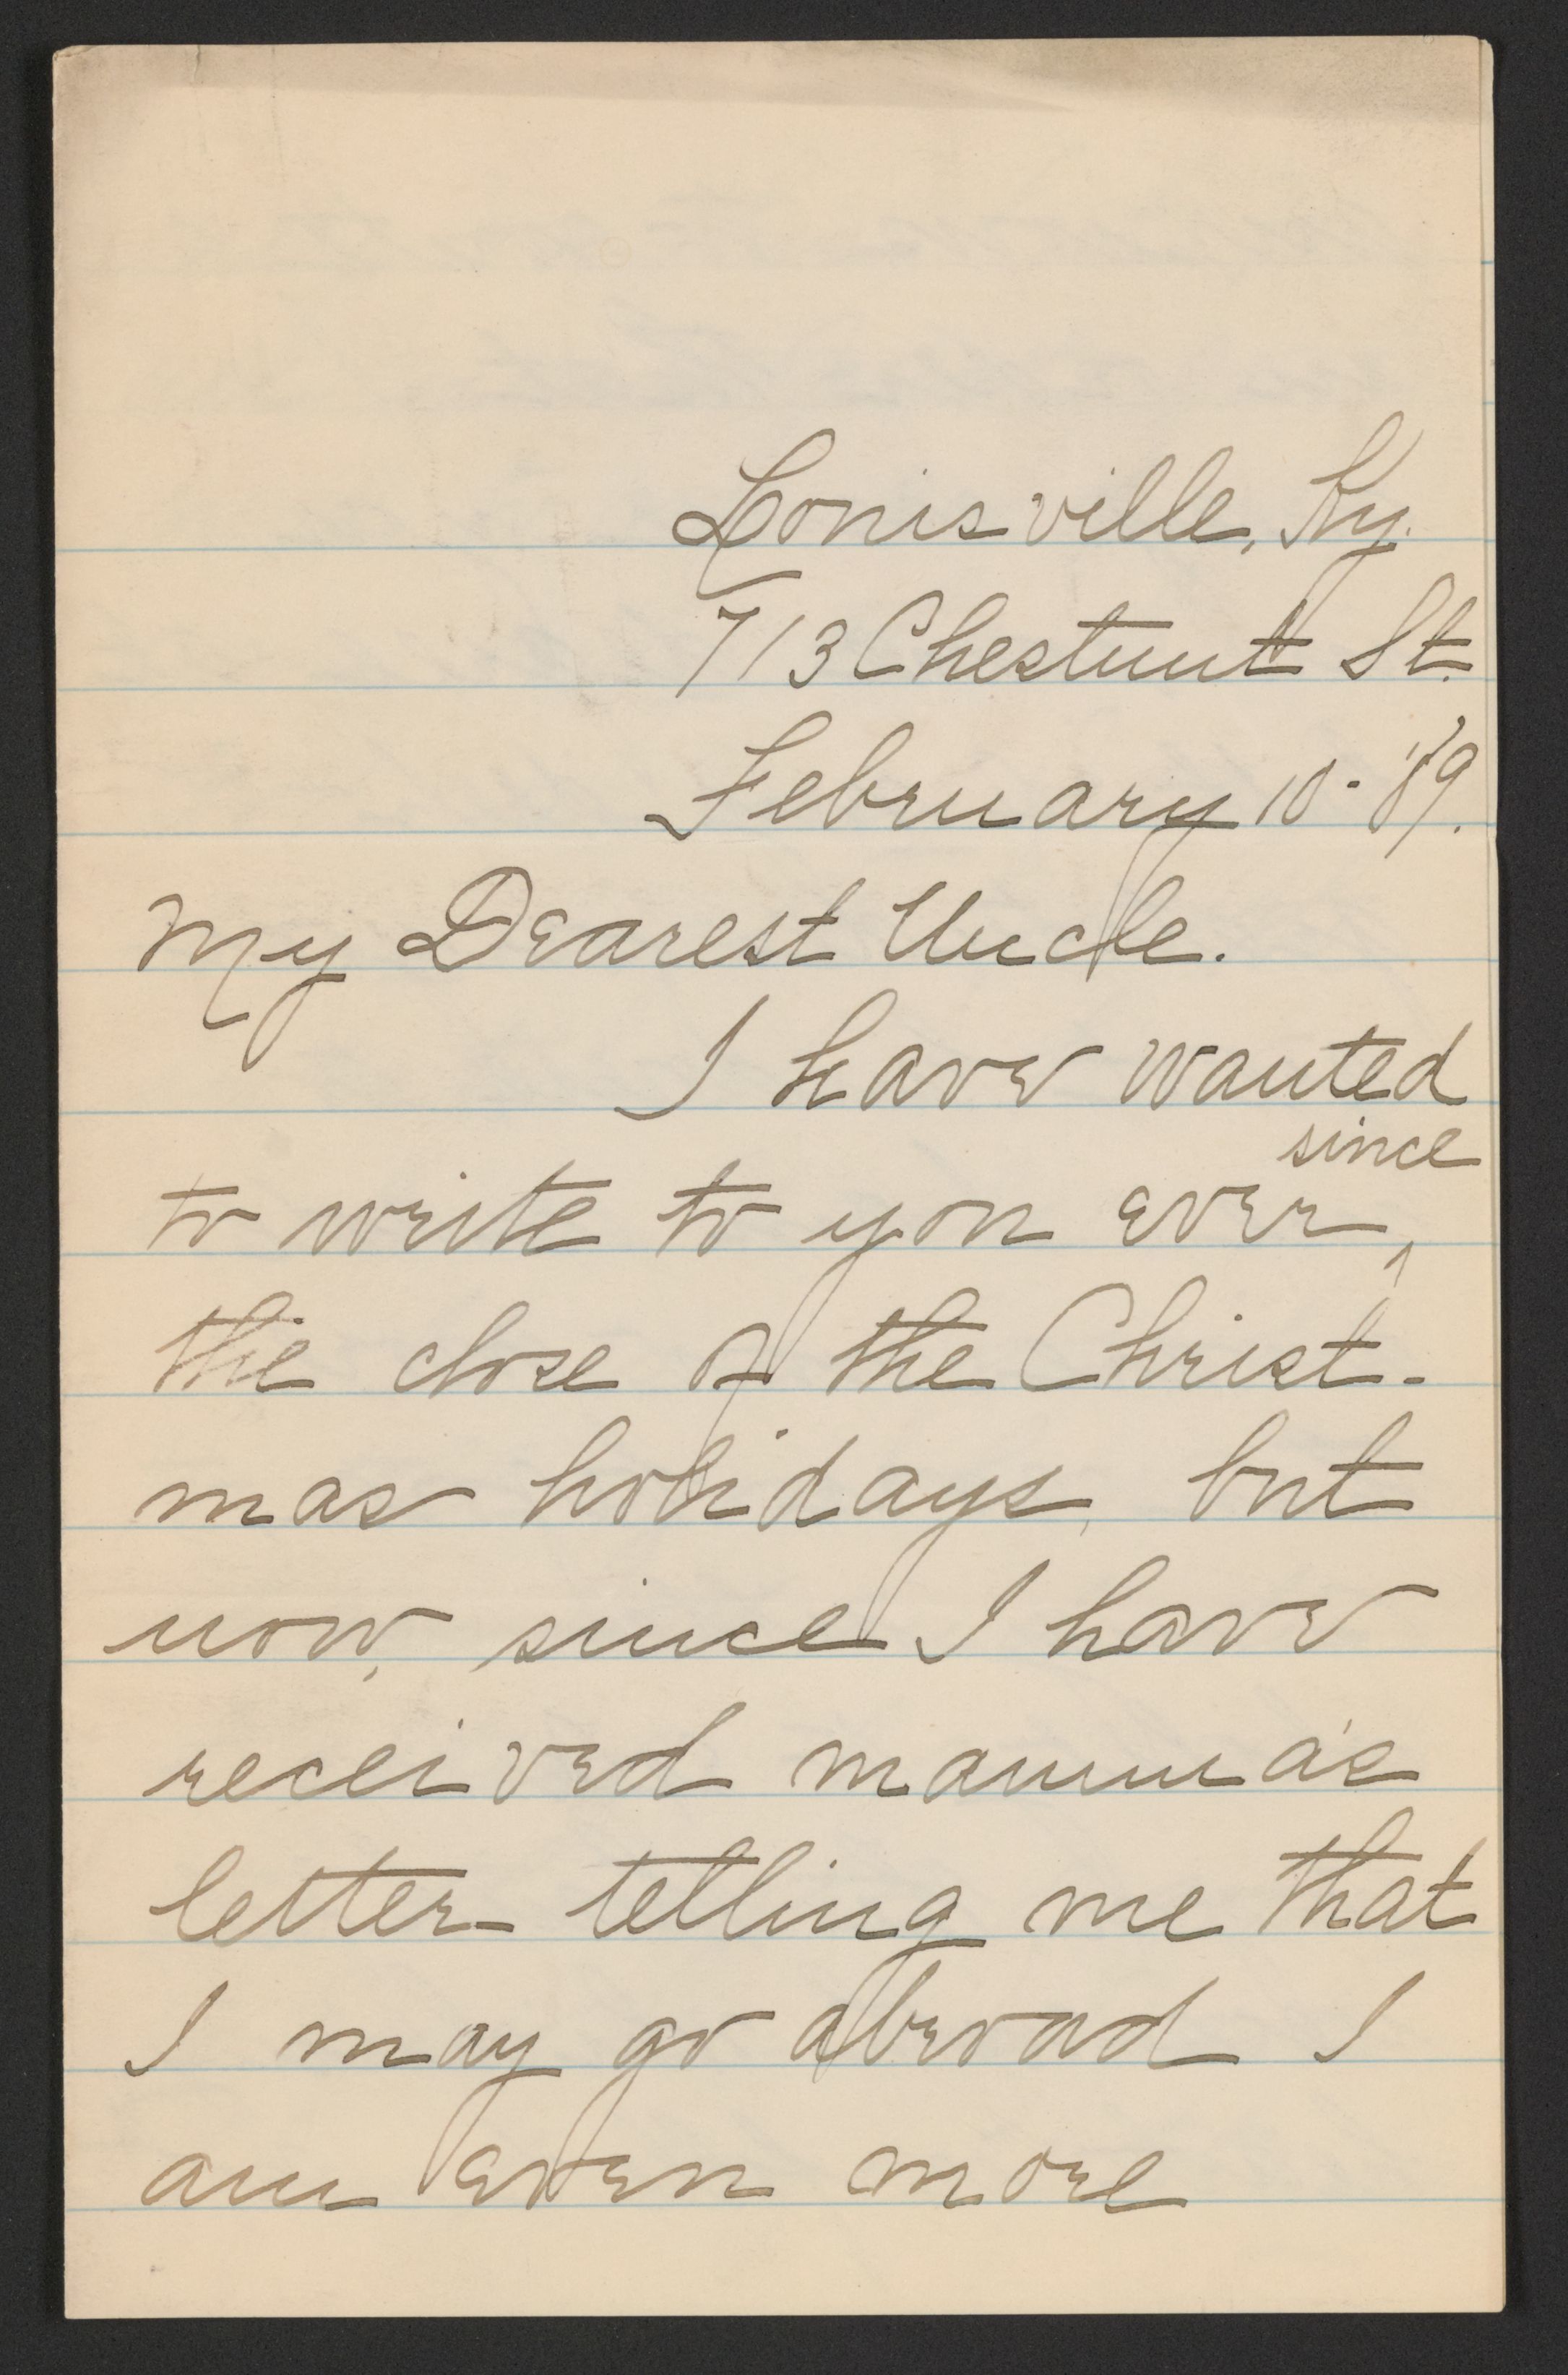 Louisville, Ky.
713 Chestnut St.
February 10 - '89.
My Dearest Uncle.
I have wanted
since
to write to you ever ^
the close of the Christ-
mas holidays, but
now, since I have
received mamma's
letter telling me that
I may go abroad I
am even more